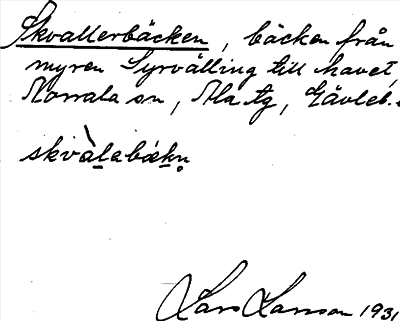 Skvallerbäcken, bäcken från
myren Syrvälling till havet,
Norrala sn, Ala tg, Gävleb.
skvàlabækn̥
Lars Larsson 1931